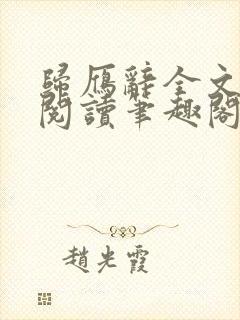 歸雁辭全文
閱讀筆趣閣
趙光霞